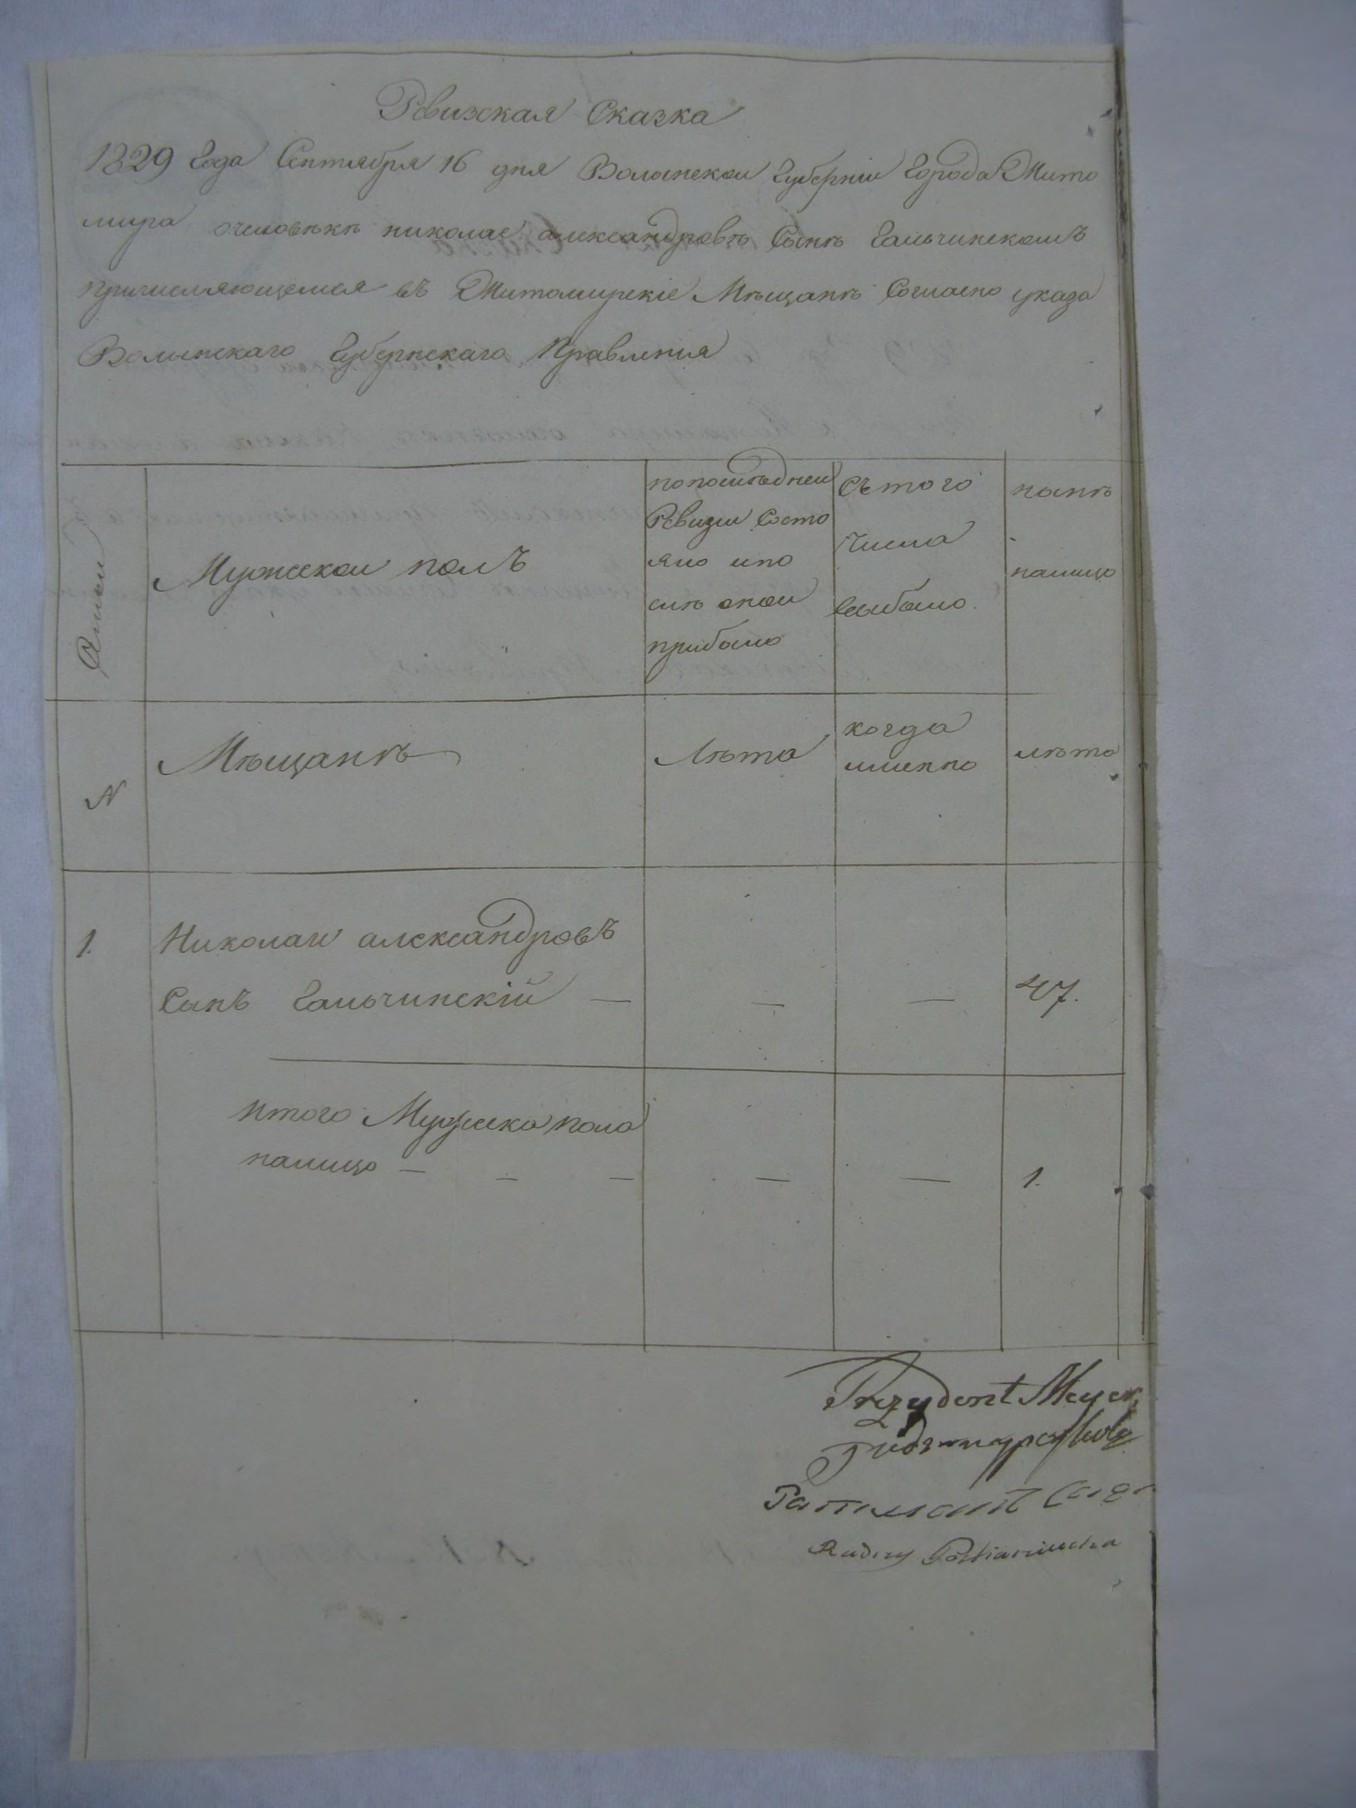 Ревижская Сказка
1829 Года Сентября 16 дня Волынской Губерніи Города Жито
мира очеловѣкѣ николае александровѣ Сынѣ Гальчинскомъ
причисляющемся въ Житомирскіе Мѣщанѣ Согласно указа
Волынскаго Губернскаго Правления
Мужескои полъ
попоследнеи
Ревизии Состо
яло ипо
слѣ онои
прибыло
Съ того
Числа
выбыло
нынѣ
налицо
Мѣщанѣ
Лѣта
когда
именно
лѣта
N
1. Николаи александровъ
Сынъ Гальчинскій — — — 47.
итого Мужеска пола
налицо — — — — — 1.
Prezydent Meyer
Ратманъ